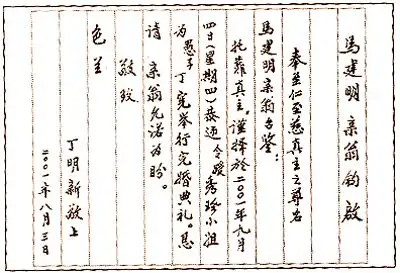 馬建明 亲翁钧啟
奉至仁至慈真主之尊名
馬建明亲翁台鉴：
托靠真主。謹擇於二○○一年九月
四日(星期四)恭迎令嫒秀珍小姐
为愚子丁宪举行完婚典礼。恳
请 亲翁允诺为盼。
敬致
色兰
丁明新敬上
二○○一年八月三日